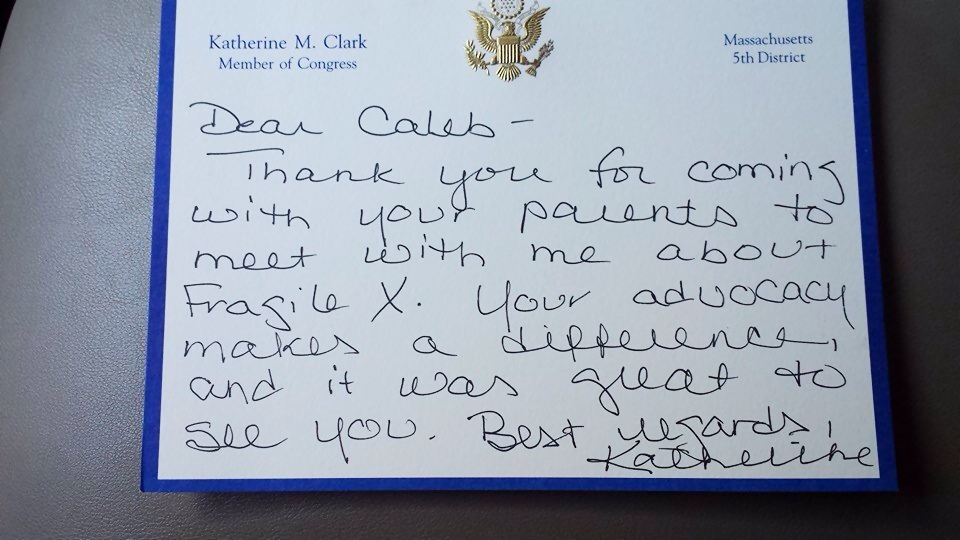 Katherine M. Clark
Member of Congress
Massachusetts
5th District
Dear Caleb -
Thank you for coming
with your parents to
meet with me about
Fragile X. Your advocacy
makes a difference,
and it was great to
see you. Best regards,
Katherine